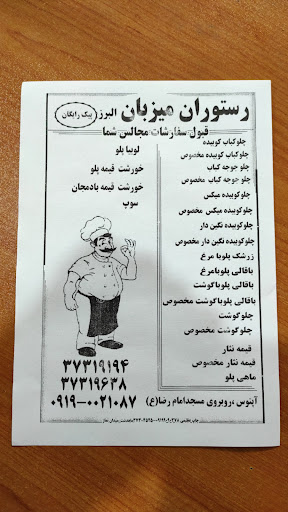 رستوران میزبان البرز
پیک رایگان
قبول سفارشات مجالس شما
چلوکباب کوبیده
چلوکباب کوبیده مخصوص
چلو جوجه کباب
چلو جوجه کباب مخصوص
چلوکوبیده میکس
چلوکوبیده میکس مخصوص
چلوکوبیده نگین دار
چلوکوبیده نگین دار مخصوص
زرشک پلوبا مرغ
باقالی پلوبامرغ
باقالی پلوباگوشت
باقالی پلوباگوشت مخصوص
چلوگوشت
چلوگوشت مخصوص
قیمه نثار
قیمه نثار مخصوص
ماهی پلو
لوبیا پلو
خورشت قیمه پلو
خورشت قیمه بادمجان
سوپ
۳۷۳۱۹۱۹۴
۳۷۳۱۹۶۳۸
۰۹۱۹-۰۰۲۱۰۸۷
آبنوس ،روبروی مسجدامام رضا(ع)